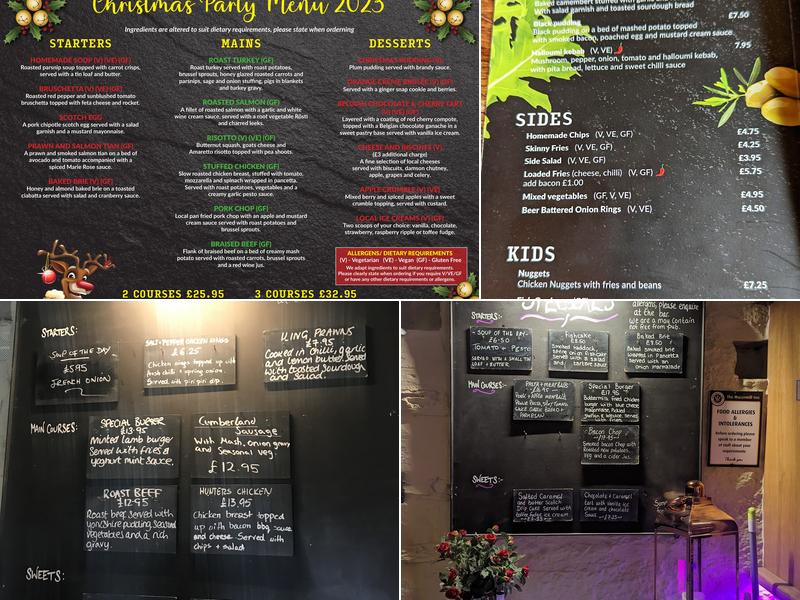 Christmas Party Menu 2023
Ingredients are altered to suit dietary requirements, please state when orderning
STARTERS
HOMEMADE SOUP (V) (VE) (GF)
Roasted parsnip soup topped with carrot crisps,
served with a tin loaf and butter.
BRUSCHETTA (V) (VE) (GF)
Roasted red pepper and sunblushed tomato
bruschetta topped with feta cheese and rocket.
SCOTCH EGG
A pork chipolte scotch egg served with a salad
garnish and a mustard mayonnaise.
PRAWN AND SALMON TIAN (GF)
A prawn and smoked salmon tian on a bed of
avocado and tomato accompanied with a
spiced Marie Rose sauce.
BAKED BRIE (V) (GF)
Honey and almond bake brie on a toasted
ciabatta served with salad and cranberry sauce.
MAINS
ROAST TURKEY (GF)
Roast turkey served with roast potatoes,
brussel sprouts, honey glazed roasted carrots and
parsnips, sage and onion stuffing, pigs in blankets
and turkey gravy.
ROASTED SALMON (GF)
A fillet of roasted salmon with a garlic and white
wine cream sauce, served with a root vegetable Rösti
and charred leeks.
RISOTTO (V) (VE) (GF)
Butternut squash, goats cheese and
Amaretto risotto topped with pea shoots.
STUFFED CHICKEN (GF)
Slow roasted chicken breast, stuffed with tomato,
mozzarella and spinach wrapped in pancetta.
Served with roast potatoes, vegetables and a
creamy garlic pesto sauce.
PORK CHOP (GF)
Local pan fried pork chop with an apple and mustard
cream sauce served with roast potatoes and
brussel sprouts.
BRAISED BEEF (GF)
Flank of braised beef on a bed of creamy mash
potato served with roasted carrots, brussel sprouts
and a red wine jus.
DESSERTS
CHRISTMAS PUDDING
Plum pudding served with brandy sauce.
ORANGE CREME BRULEE (V) (GF)
Served with a ginger snap cookie and berries.
CHOCOLATE & CHERRY TART
(V) (VE) (GF)
Layered with a coating of red cherry compote,
topped with a Belgian chocolate ganache in a
sweet pastry base served with vanilla ice cream.
CHEESE AND BISCUITS (V)
(£3 additional charge)
A fine selection of local cheeses
served with biscuits, damson chutney,
apple, grapes and celery.
APPLE CRUMBLE (V) (VE)
Mixed berry and spiced apples with a sweet
crumble topping, served with custard.
LOCAL ICE CREAMS (V) (GF)
Two scoops of your choice: vanilla, chocolate,
strawberry, raspberry ripple or toffee fudge.
ALLERGENS/ DIETARY REQUIREMENTS
(V) - Vegetarian (VE) - Vegan (GF) - Gluten Free
We adapt ingredients to suit dietary requirements.
Please clearly state when ordering if you require V/VE/GF
or have any other dietary requirements or allergens.
2 COURSES £25.95 3 COURSES £32.95
Baked camembert stuffed with garlic
With salad garnish and toasted sourdough bread
£7.50
Black pudding
Black pudding on a bed of mashed potato topped
with smoked bacon, poached egg and mustard cream sauce
Halloumi kebab (V, VE) 7.95
Mushroom, pepper, onion, tomato and halloumi kebab,
with pita bread, lettuce and sweet chilli sauce
SIDES
Homemade Chips (V, VE, GF) £4.75
Skinny Fries (V, VE, GF) £4.25
Side Salad (V, VE, GF) £3.95
Loaded Fries (cheese, chilli) (V, GF) £5.75
add bacon £1.00
Mixed vegetables (GF, V, VE) £4.95
Beer Battered Onion Rings (V, VE) £4.50
KIDS
Nuggets
Chicken Nuggets with fries and beans £7.25
STARTERS:
SOUP OF THE DAY
£5.95
FRENCH ONION
SALT+PEPPER CHICKEN WINGS
£6.25
Chicken wings topped up with
fresh chilli + spring onion.
Served with piri piri dip.
KING PRAWNS
£7.95
Cooked in chilli, garlic
and lemon butter. Served
with toasted sourdough
and Salad.
MAIN COURSES:
SPECIAL BURGER
£13.95
Minted lamb burger
Served with fries &
yoghurt mint sauce.
Cumberland
Sausage
With Mash, onion gravy
and Seasonal veg.
£12.95
ROAST BEEF
£12.95
Roast beef served with
yorkshire pudding, seasonal
vegetables and a rich
gravy.
HUNTERS CHICKEN
£13.95
Chicken breast topped
up with bacon bbq sauce
and cheese. Served with
chips + salad
SWEETS:
allergens, please enquire
at the bar.
STARTERS:
- SOUP OF THE DAY -
£6.50
TOMATO + PESTO
SERVED WITH A SMALL TIN
LOAF + BUTTER
Fishcake
£8.50
Smoked haddock,
spring onion fishcake
served with a salad
and tartare sauce
Baked Brie
£8.50
Baked smoked brie
wrapped in Pancetta
served with an
onion marmalade
MAIN COURSES:
Special Burger
£17.95
Buttermilk fried chicken
burger with blue cheese
Bacon Chop
Smoked bacon Chop with
Roasted new potatoes,
veg and a cider jus.
SWEETS:
Salted Caramel
and butter Scotch
Chocolate + Caramel
tart with vanilla ice
cream and chocolate
Sauce
FOOD ALLERGIES
&
INTOLERANCES
Before ordering please
speak to a member
of staff about your
requirements
Thank you